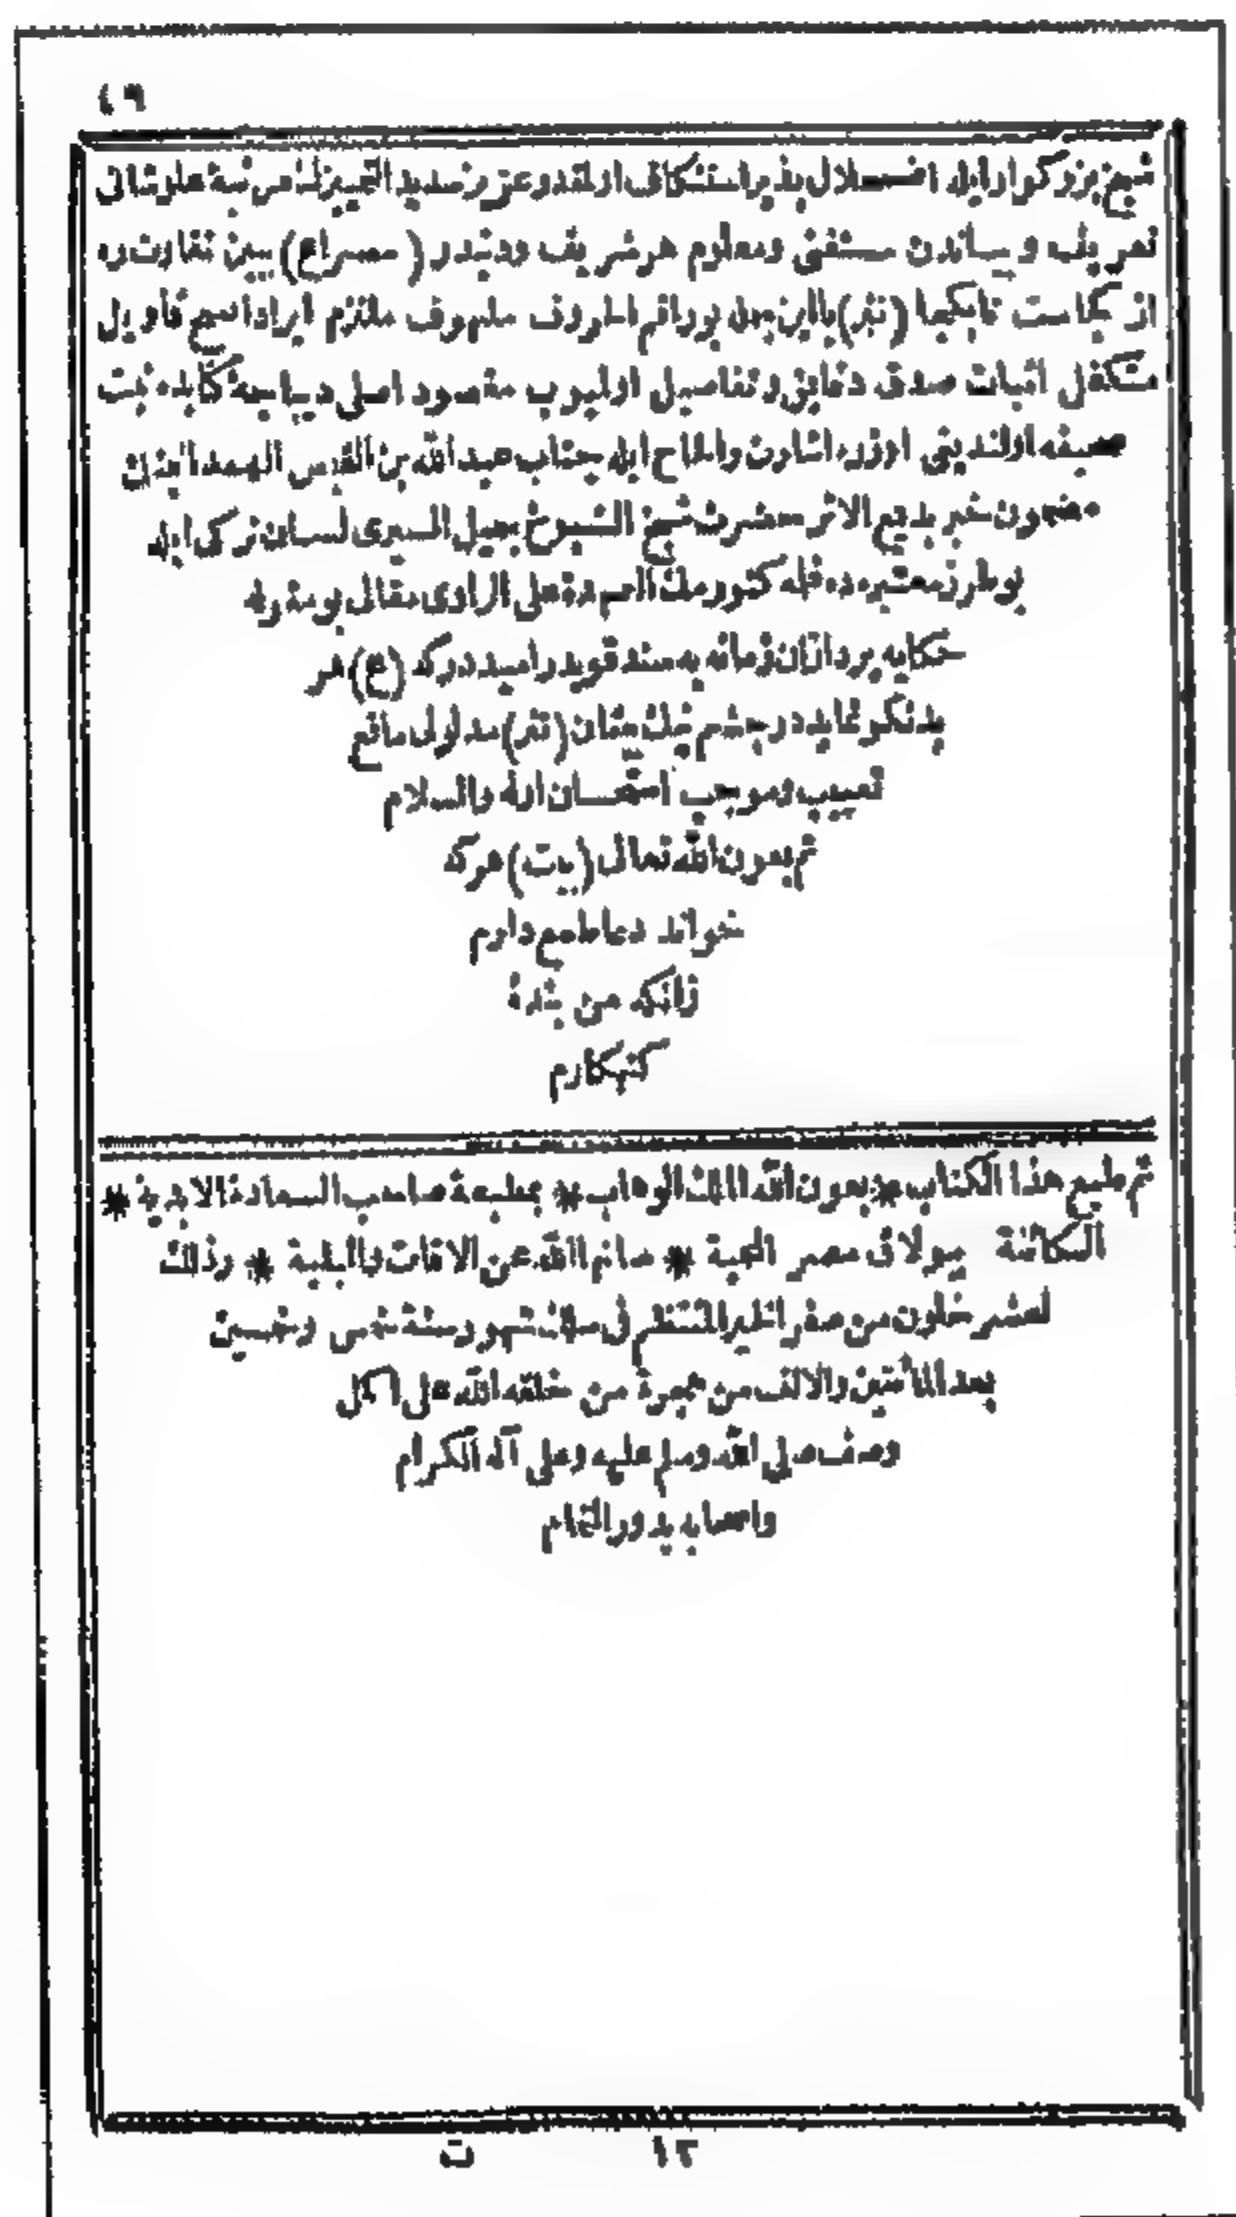 ٤٩
شيخ بزركوار ايله اضمحلال پذير استنكاف اولندوغى
تعريف وبياندن مستغنى ومعلوم هر شريف ودنيدر (مصراع) ببين تفاوت ره
از كجاست تا بكجا (نثر) با اين همه بو راقم الحروف ملهوف ملتزم ايراد اصح اقاويل
متكفل اثبات صدق دقايق وتفاصيل اوليوب مقصود اصلى ديباجهٔ كتابده ثبت
صحيفه اولنديغى اوزره اشارت والحاح ايله جناب عبد الله بن القيس الهمدانينك
مضمون خبر بديع الاثر حضرت شيخ الشيوخ جميل السيرى لسان تركى ايله
بو طرز معتبره ده نقله كتورمك العهدة على الراوى مقالى بو مقوله
حكايه پردازان زمانه يه سند قويدر اميددركه (ع) هر
بد نكو نمايد در چشم نيك بينان (نثر) مدلولى مانع
تعييب وموجب استحسان اوله والسلام
تم بعون الله تعالى (بيت) هركه
خواند دعا طمع دارم
زانكه من بندهٔ
كنهكارم
تم طبع هذا الكتاب * بعون الله الملك الوهاب * بمطبعة صاحب السعادة الابدية *
الكائنة ببولاق مصر المحمية * صانها الله عن الافات والبلية * وذلك
لعشر خلون من صفر الخير المنتظم فى سلك شهور سنة خمس وخمسين
بعد المائتين والالف من هجرة من خلقه الله على اكمل
وصف صلى الله وسلم عليه وعلى آله الكرام
واصحابه بدور التمام
١٣ ت